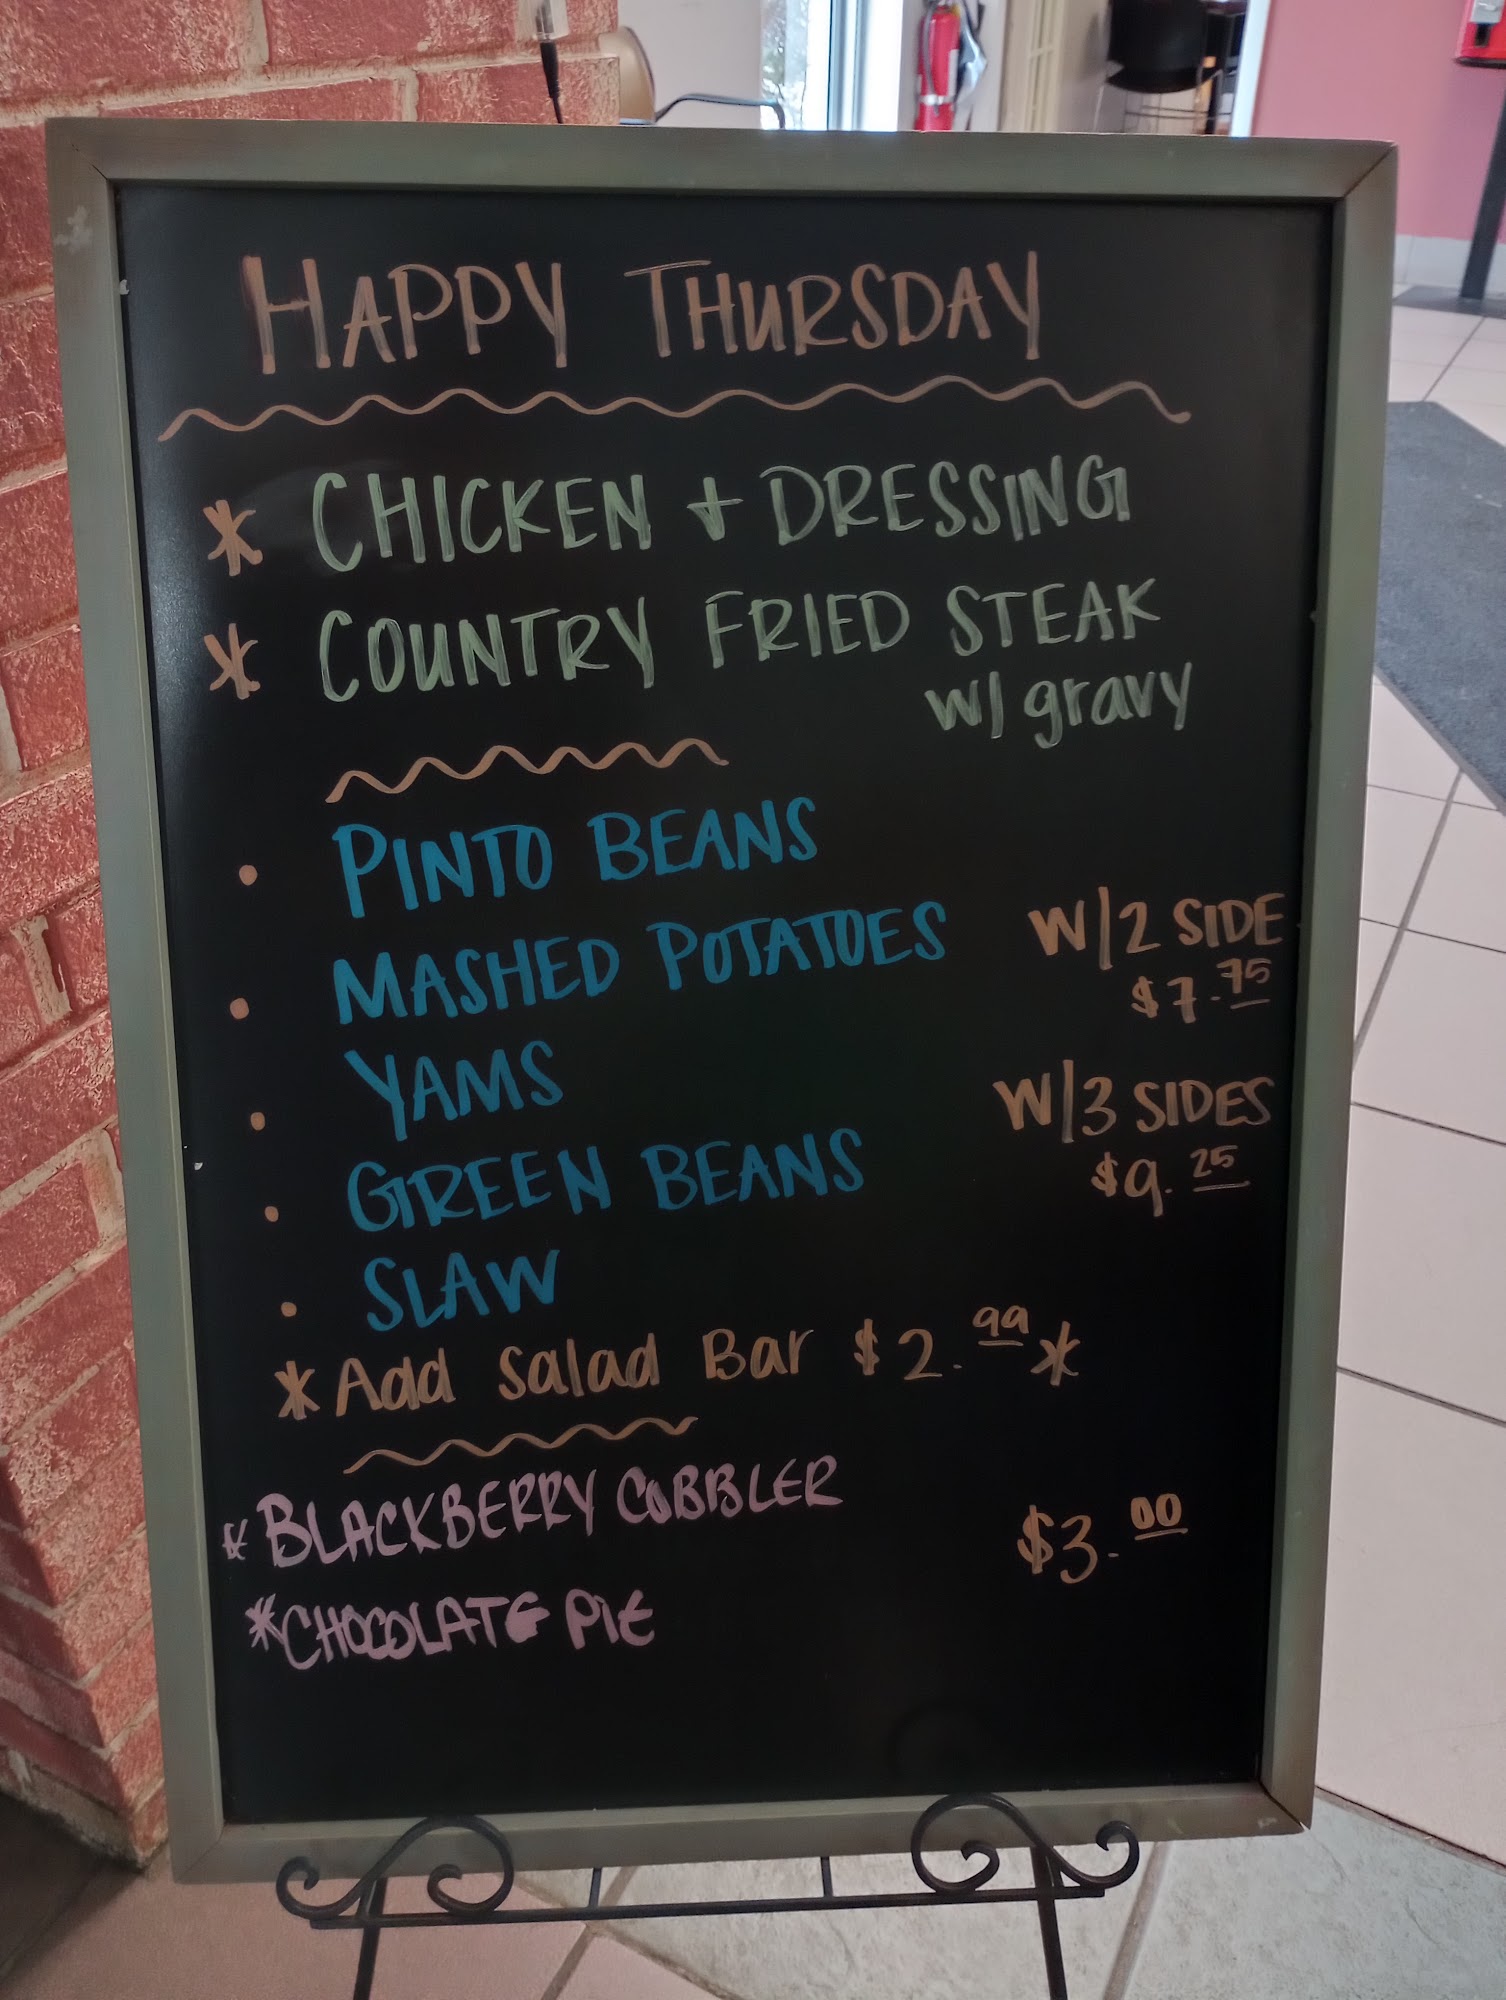 HAPPY THURSDAY
* CHICKEN + DRESSING
* COUNTRY FRIED STEAK
w/ gravy
• PINTO BEANS
• MASHED POTATOES
W/2 SIDE
$7.75
• YAMS
W/3 SIDES
$9.25
• GREEN BEANS
• SLAW
*Add Salad Bar $2.99*
*BLACKBERRY COBBLER
$3.00
*CHOCOLATE PIE